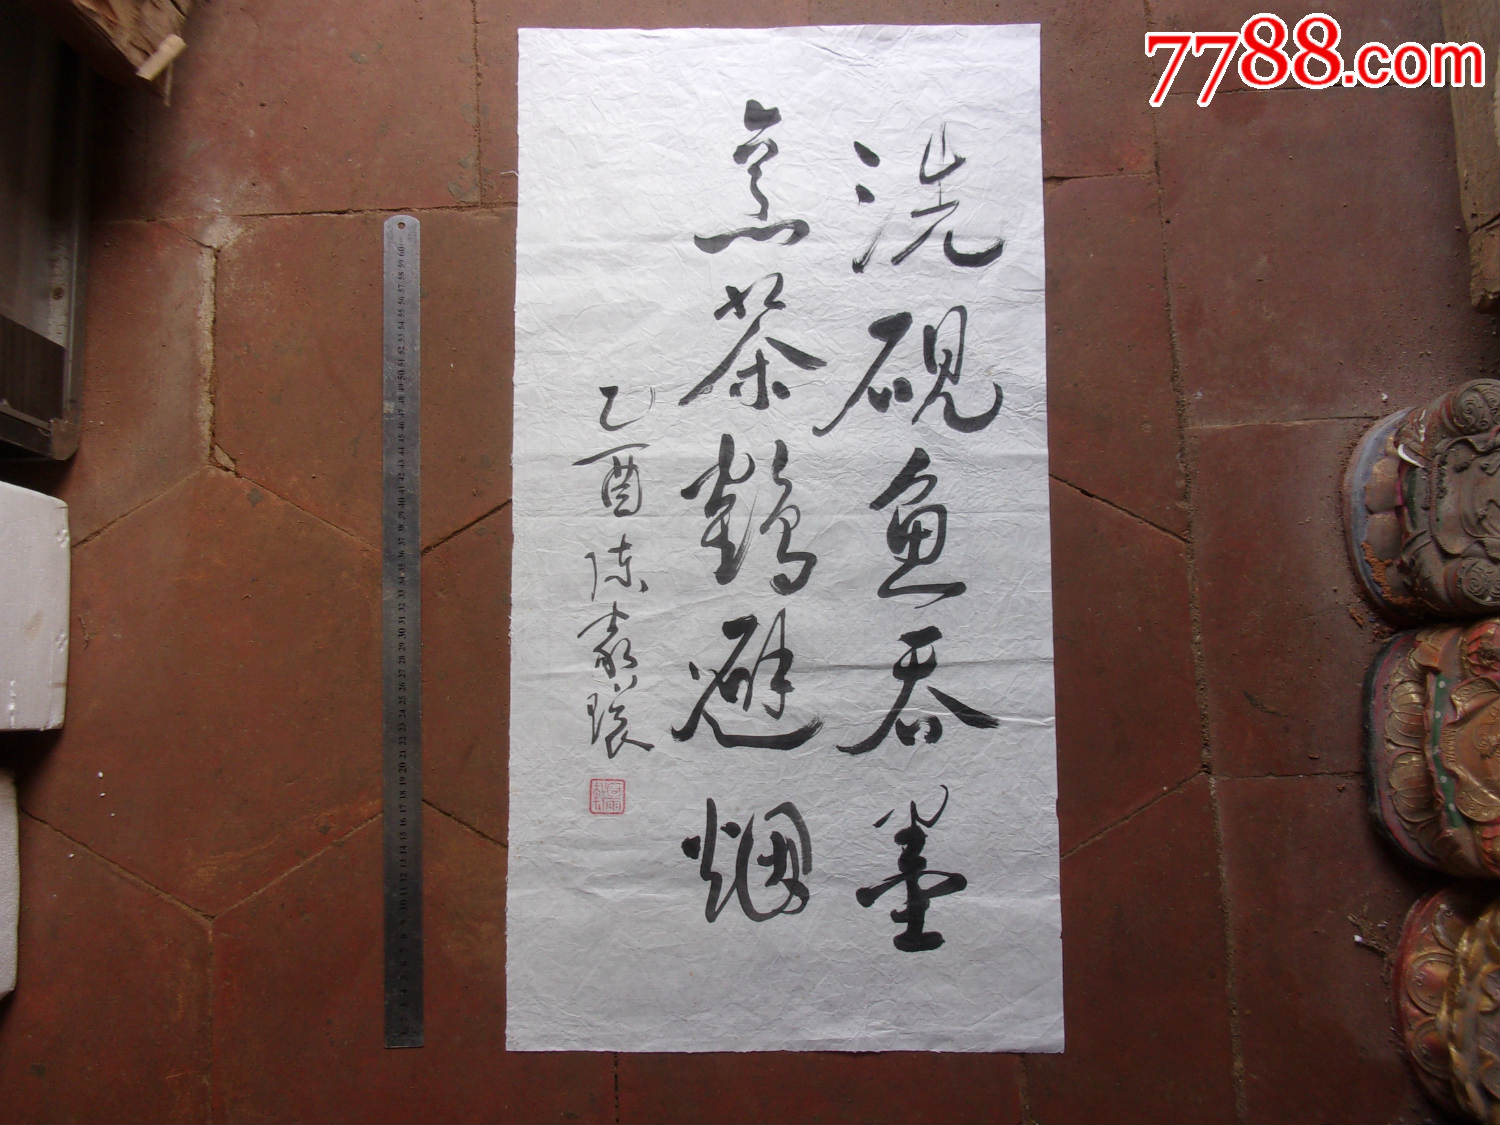 洗砚鱼吞墨
烹茶鹤避烟
乙酉 陈嘉璟
7788.com